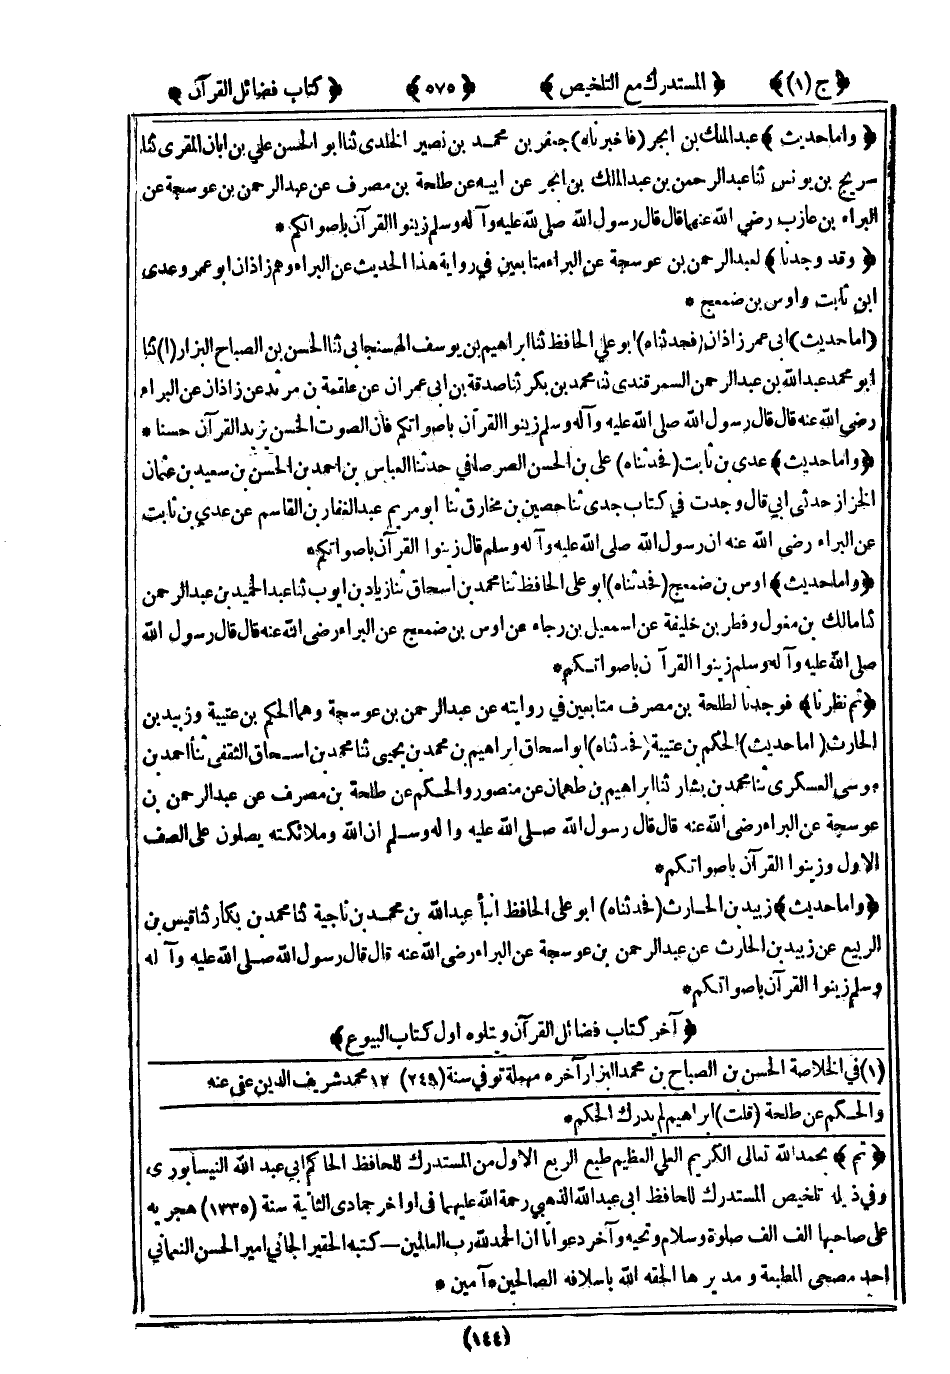 ﴿ ج (١) ﴾ ﴿ المستدرك مع التلخيص ﴾ ﴿ ٥٧٥ ﴾ ﴿ كتاب فضائل القرآن ﴾
﴿ واما حديث ﴾ عبدالملك بن ابجر (فاخبرناه) جعفر بن محمد بن نصير الخلدى ثنا ابو الحسن علي بن ابان المقرى ثنا
سريج بن يونس ثنا عبدالرحمن بن عبدالملك بن ابجر عن ابيه عن طلحة بن مصرف عن عبدالرحمن بن عوسجة عن
البراء بن عازب رضي الله عنهما قال قال رسول الله صلى الله عليه وآله وسلم زينوا القرآن باصواتكم *
﴿ وقد وجدنا ﴾ لعبدالرحمن بن عوسجة عن البراء متابعين في رواية هذا الحديث عن البراء وهم زاذان ابو عمر وعدى
ابن ثابت واوس بن ضمعج *
(اما حديث) ابى عمر زاذان (فحدثناه) ابو علي الحافظ ثنا ابراهيم بن يوسف الهسنجابى ثنا الحسن بن الصباح البزار (١) ثنا
ابو محمد عبدالله بن عبدالرحمن السمرقندى ثنا محمد بن بكر ثنا صدقة بن ابى عمران عن علقمة بن مرثد عن زاذان عن البراء
رضي الله عنه قال قال رسول الله صلى الله عليه وآله وسلم زينوا القرآن باصواتكم فان الصوت الحسن يزيد القرآن حسنا *
﴿ واما حديث ﴾ عدى بن ثابت (فحدثناه) على بن الحسن الصرصافي حدثنا العباس بن احمد بن الحسن بن سعيد بن عثمان
الخزاز حدثى ابي قال وجدت في كتاب جدى ثنا حصين بن مخارق ثنا ابو مريم عبدالغفار بن القاسم عن عدي بن ثابت
عن البراء رضي الله عنه ان رسول الله صلى الله عليه وآله وسلم قال زينوا القرآن باصواتكم *
﴿ واما حديث ﴾ اوس بن ضمعج (فحدثناه) ابو على الحافظ ثنا محمد بن اسحاق ثنا زياد بن ايوب ثنا عبدالحميد بن عبدالرحمن
ثنا مالك بن مغول وفطر بن خليفة عن اسمعيل بن رجاء عن اوس بن ضمعج عن البراء رضى الله عنه قال قال رسول الله
صلى الله عليه وآله وسلم زينوا القرآن باصواتكم *
﴿ ثم نظرنا ﴾ فوجدنا لطلحة بن مصرف متابعين في روايته عن عبدالرحمن بن عوسجة وهما الحكم بن عتيبة وزبيد بن
الحارث (اما حديث) الحكم بن عتيبة (فحدثناه) ابو اسحاق ابراهيم بن محمد بن يحيى ثنا محمد بن اسحاق الثقفى ثنا احمد بن
موسى العسكرى ثنا محمد بن بشار ثنا ابراهيم بن طهمان عن منصور والحكم عن طلحة بن مصرف عن عبدالرحمن بن
عوسجة عن البراء رضى الله عنه قال قال رسول الله صلى الله عليه واله وسلم ان الله وملائكته يصلون على الصف
الاول وزينوا القرآن باصواتكم *
﴿ واما حديث ﴾ زبيد بن الحارث (فحدثناه) ابو على الحافظ انبأ عبدالله بن محمد بن ناجية ثنا محمد بن بكار ثنا قيس بن
الربيع عن زبيد بن الحارث عن عبدالرحمن بن عوسجة عن البراء رضى الله عنه قال قال رسول الله صلى الله عليه وآله
وسلم زينوا القرآن باصواتكم *
﴿ آخر كتاب فضائل القرآن ويتلوه اول كتاب البيوع ﴾
(١) في الخلاصة الحسن بن الصباح بن محمد البزار آخره مهملة توفي سنة (٢٤٩) ١٢ محمد شريف الدين عفى عنه
والحكم عن طلحة (قلت) ابراهيم لم يدرك الحكم *
﴿ تم ﴾ بحمد الله تعالى الكريم العلي العظيم طبع الربع الاول من المستدرك للحافظ الحاكم ابي عبد الله النيسابورى
وفي ذيله تلخيص المستدرك للحافظ ابى عبدالله الذهبي رحمة الله عليهما فى اواخر جمادى الثانية سنة (١٣٣٥) هجريه
على صاحبها الف الف صلوة وسلام وتحيه وآخر دعوانا ان الحمدلله رب العالمين — كتبه الحقير الجاني امير الحسن النعماني
احد مصححى المطبعة ومديرها الحقه الله باسلافه الصالحين * آمين *
(١٤٤)